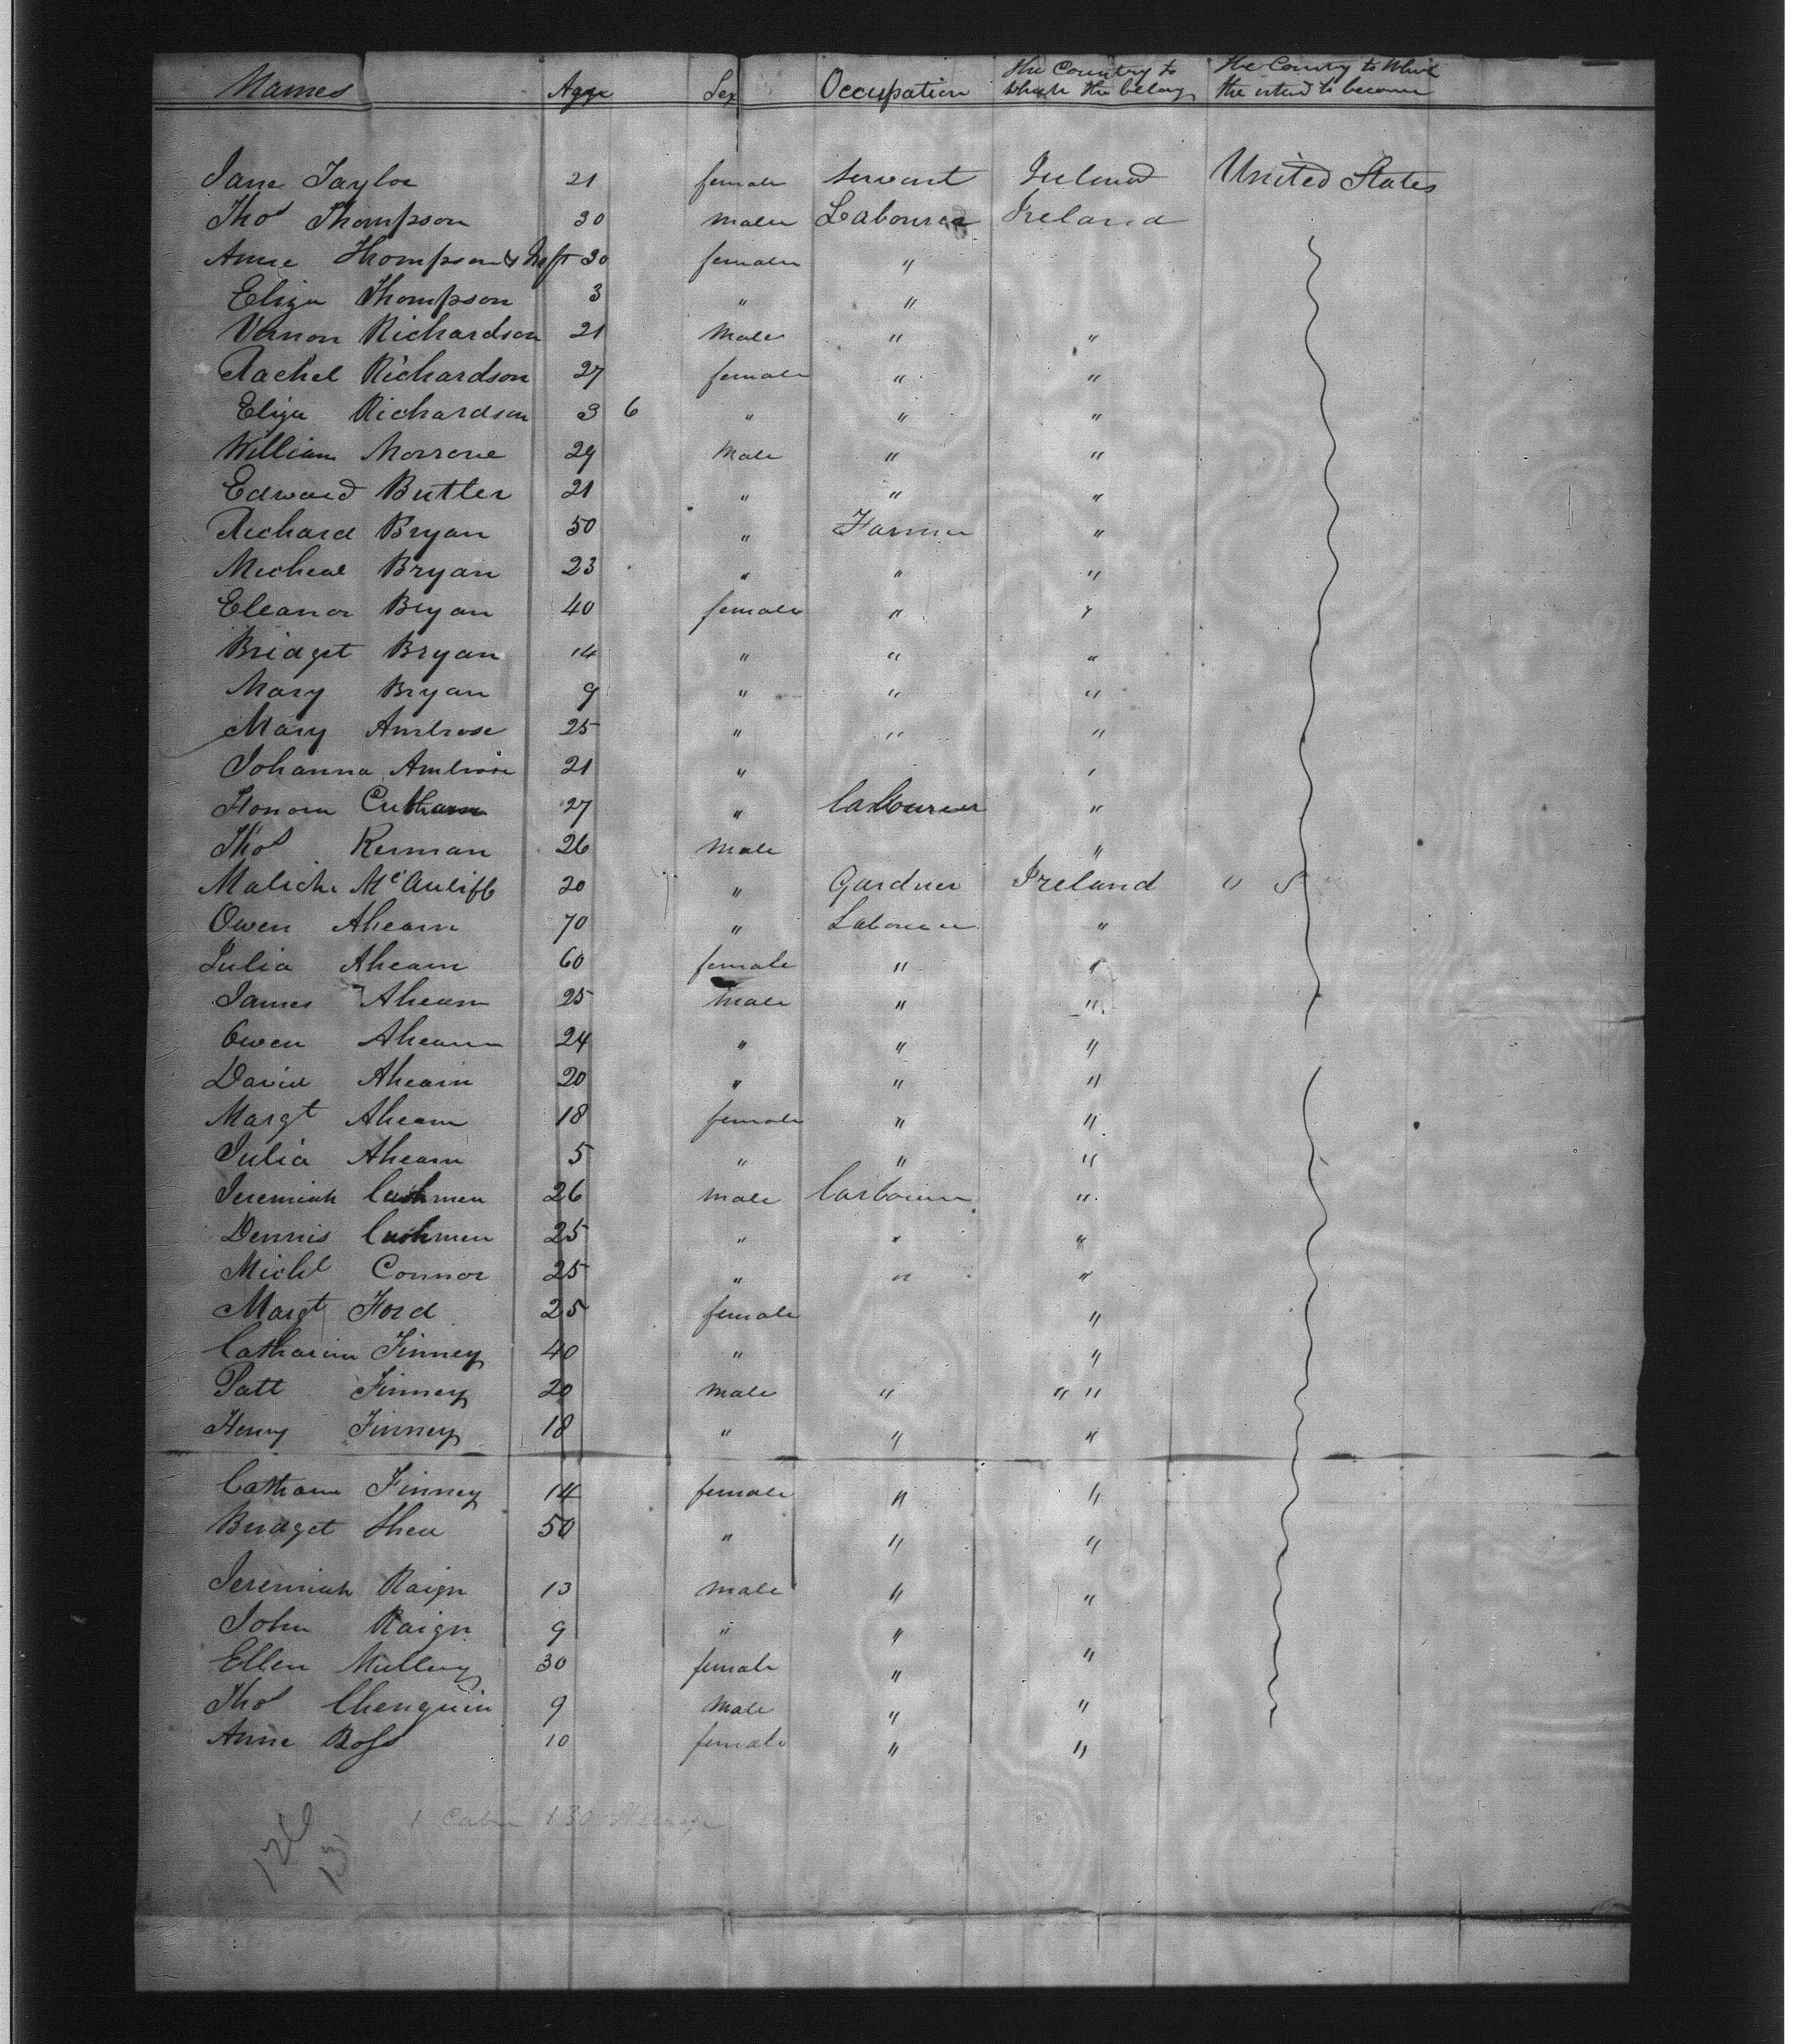 Names Agge Sex Occupation the Country to which the belong the County to Which the intend to become
Jane Taylor 21 female Servant Ireland United States
Thos Thompson 30 male Labourer Ireland
Anne Thompson & Inft 30 female "
Eliza Thompson 3 " "
Vernon Richardson 21 Male " "
Rachel Richardson 27 female " "
Eliza Richardson 3 6 " " "
William Morrone 29 Male " "
Edward Butler 21 " " "
Richard Bryan 50 " Farmer "
Micheal Bryan 23 " " "
Eleanor Bryan 40 female " "
Bridget Bryan 14 " " "
Mary Bryan 9 " " "
Mary Ambrose 25 " " "
Johanna Ambrose 21 " "
Honora 27 " labourer "
Thos Kerman 26 Male "
Malich McAuliff 20 " Gardner Ireland "
Owen Ahearn 70 " Labourer "
Julia Ahearn 60 female " "
James Ahearn 25 Male " "
Owen Ahearn 24 " " "
David Ahearn 20 " " "
Margt Ahearn 18 female " "
Julia Ahearn 5 " " "
Jeremiah Cushmen 26 male "
Dennis Cushmen 25 " " "
Michl Connor 25 " " "
Margt Ford 25 female "
Catharine Finney 40 " "
Patt Finney 20 male " " "
Henry Finney 18 " " "
Catharne Finney 14 female " "
Bridget Shea 50 " " "
Jeremiah Raign 13 male " "
John Raign 9 " "
Ellen Mullery 30 female " "
Thos Chenguin 9 Male " "
Anne Ross 10 female " "
1 Cabin 130 Steerage